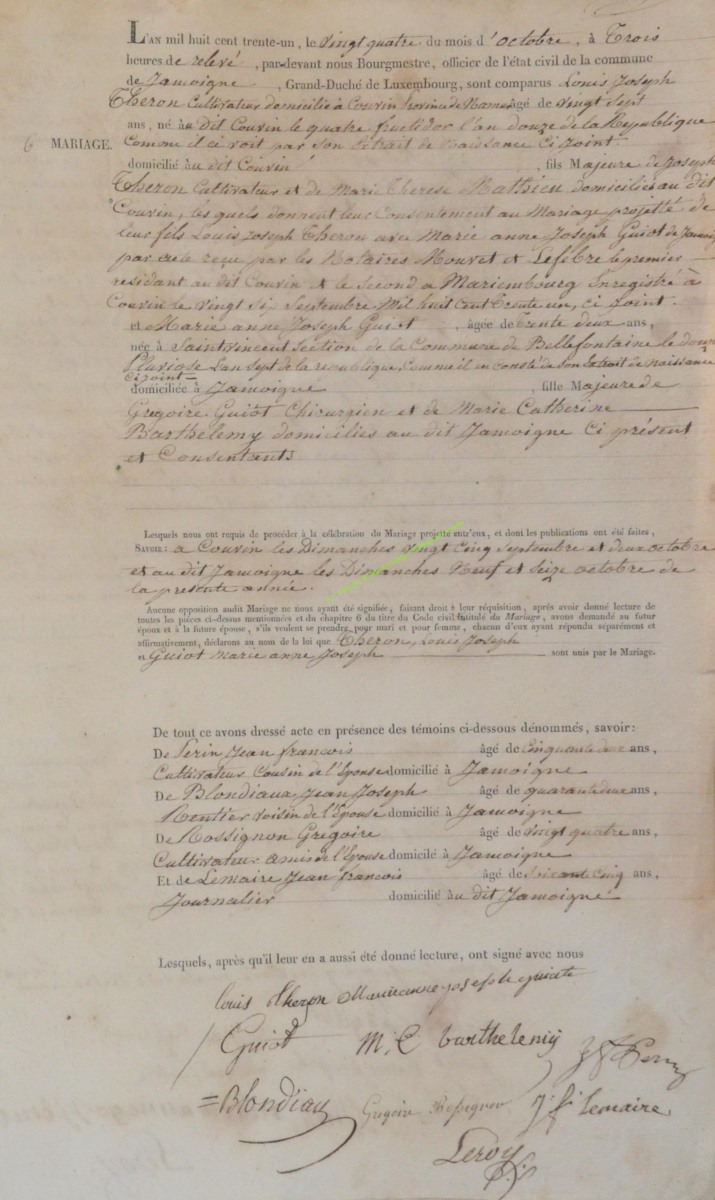 L'AN mil huit cent trente-un, le vingt quatre du mois d'octobre, à Trois
heures de relevé, par-devant nous Bourgmestre, officier de l'état civil de la commune
de Jamoigne, Grand-Duché de Luxembourg, sont comparus Louis Joseph
Theron Cultivateur domicilié à Couvin Province de Namur âgé de vingt Sept
ans, né au dit Couvin le quatre fructidor l'an douze de la Republique
6 MARIAGE. Comme il ce voit par son Extrait de Naissance Ci joint
domicilié au dit Couvin, fils Majeure de Joseph
Theron Cultivateur et de Marie Therese Mathieu domiciliés au dit
Couvin, les quels donnent leur Consentement au Mariage projetté de
leur fils Louis Joseph Theron avec Marie anne Joseph Guiot de Jamoigne
par acte reçu par les Notaires Mouvet et Lefebre le premier
residant au dit Couvin et le Second a Mariembourg Enregistré à
Couvin le vingt Six Septembre Mil huit Cent Trente un, ci joint.
et Marie anne Joseph Guiot, âgée de Trente deux ans,
née à Saint vincent Section de la Commune de Bellefontaine le douze
Pluviose L'an Sept de la republique, Comme il en Consté de son Extrait de Naissance
Ci joint
domiciliée à Jamoigne, fille Majeure de
Gregoire Guiot Chirurgien et de Marie Catherine
Barthelemy domiciliés au dit Jamoigne Ci présent
et Consentants
Lesquels nous ont requis de procéder à la célébration du Mariage projetté entr'eux, et dont les publications ont été faites,
SAVOIR: a Couvin les Dimanches vingt Cinq Septembre et deux octobre
et au dit Jamoigne les Dimanches Neuf et Seize octobre de
la presente année.
Aucune opposition audit Mariage ne nous ayant été signifiée, faisant droit à leur réquisition, après avoir donné lecture de
toutes les pièces ci-dessus mentionnées et du chapitre 6 du titre du Code civil intitulé du Mariage, avons demandé au futur
époux et à la future épouse, s'ils veulent se prendre pour mari et pour femme, chacun d'eux ayant répondu séparément et
affirmativement, déclarons au nom de la loi que Theron, Louis Joseph
et Guiot Marie anne Joseph sont unis par le Mariage.
De tout ce avons dressé acte en présence des témoins ci-dessous dénommés, savoir:
De Perin Jean francois âgé de Cinquante deux ans,
Cultivateur Cousin de l'Epouse domicilié à Jamoigne
De Blondiaux Jean Joseph âgé de quarante deux ans,
Rentier voisin de l'Epouse domicilié à Jamoigne
De Rossignon Gregoire âgé de vingt quatre ans,
Cultivateur amis de l'Epouse domicilé à Jamoigne
Et de Lemaire Jean francois âgé de Soixante Cinq ans,
Journalier domicilié au dit Jamoigne
Lesquels, après qu'il leur en a aussi été donné lecture, ont signé avec nous
louis theron Marieanne joseph guiote
Guiot M. C barthelemÿ
Blondiau Gregoire Rossignon J. f. lemaire
Leroy